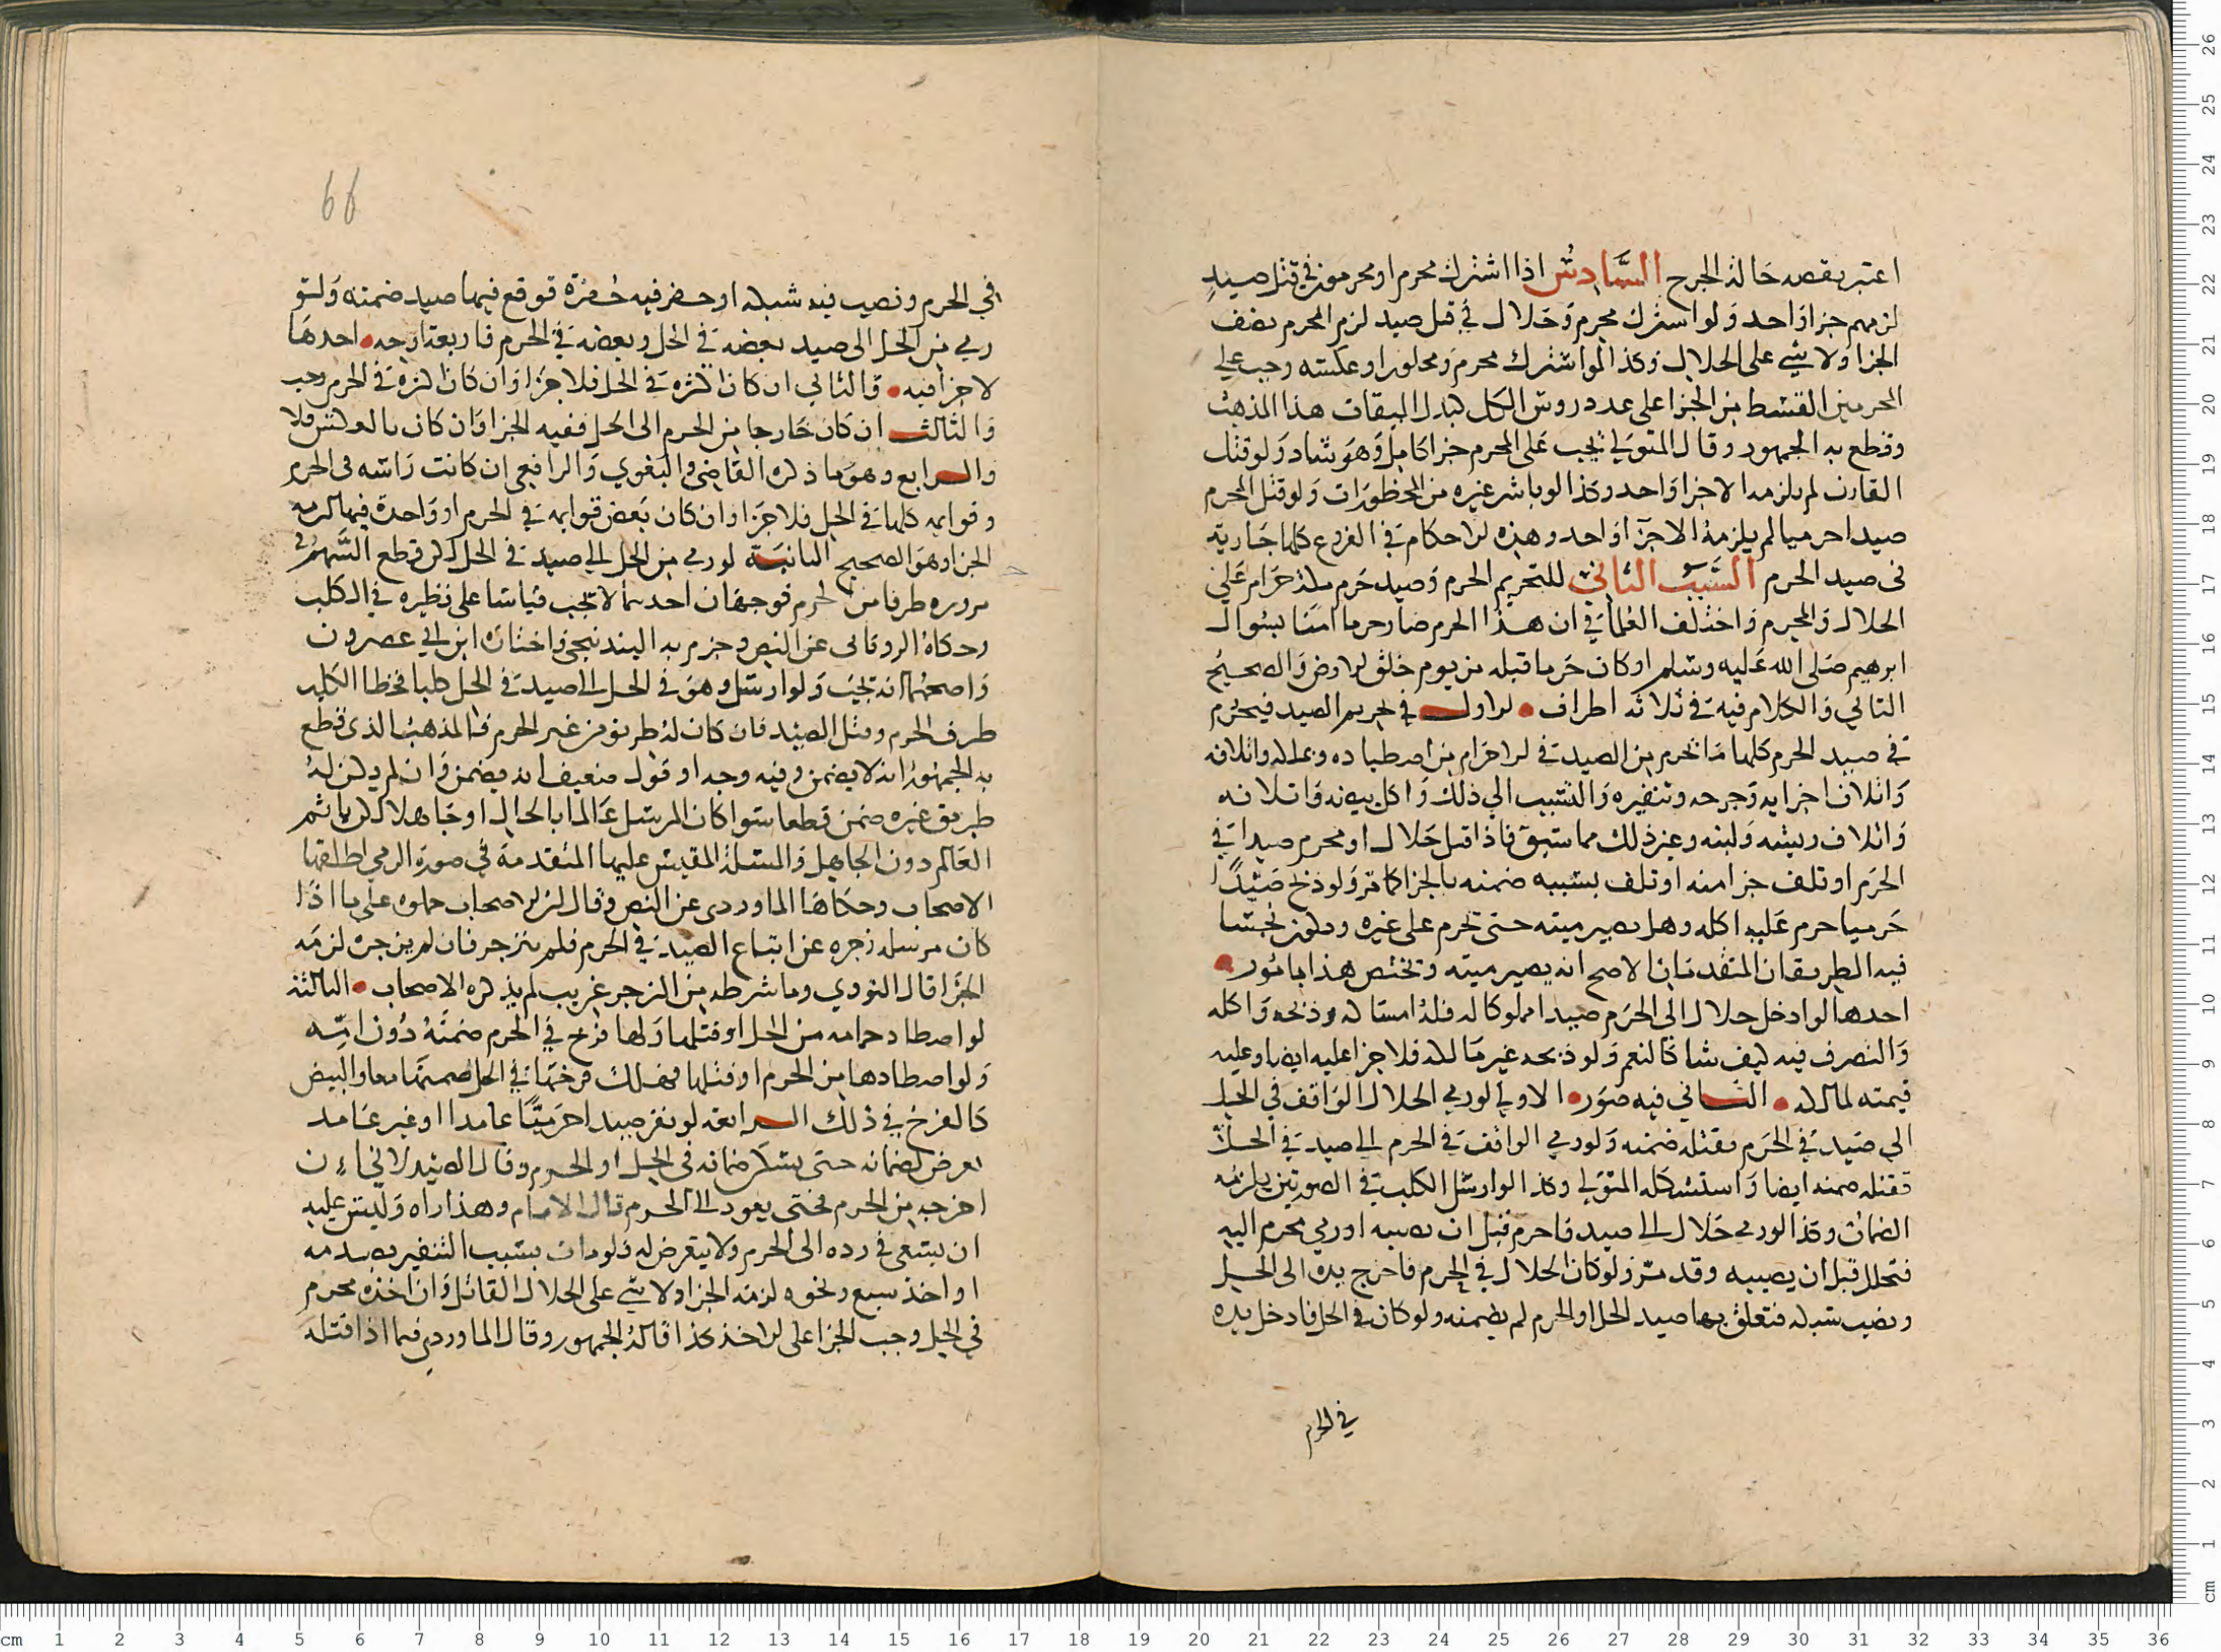 اعتبر بقصه حالة الجرح السادس اذا اشترك محرم او محرمون في قتل صيد
لزمهم جزا واحد ولو اشترك محرم وحلال في قتل صيد لزم المحرم نصف
الجزا ولا شي على الحلال وكذا لو اشترك محرم ومحلون او عكسه وجب على
المحرمين القسط من الجزا على عدد روس الكل كبدل المیقات هذا المذهب
وقطع به الجمهور وقال المتولي يجب على المحرم جزا كامل وهو شاد ولو قتل
القارن لم يلزمه الا جزا واحد وكذا لو باشر غيره من المحظورات ولو قتل المحرم
صيدا حرميا لم يلزمه الا جزا واحد وهذه الاحكام في الفروع كلها جارية
في صيد الحرم السبب الثاني للتحريم الحرم وصيد حرم مكة حرام على
الحلال والمحرم واختلف العلما في ان هذا الحرم صار حرما امنا بسوال
ابرهيم صلى الله عليه وسلم او كان حرما قبله من يوم خلق الارض والصحيح
الثاني والكلام فيه في ثلاثة اطراف الاول في تحريم الصيد فيحرم
في صيد الحرم كلما يحرم من الصيد في الاحرام من اصطياده وتملكه واتلافه
واتلاف اجزايه وجرحه وتنفيره والتسبب الي ذلك واكل بيضه واتلافه
واتلاف ريشه ولبنه وغير ذلك مما سبق فاذا قتل حلال او محرم صيدا في
الحرم او تلف جزا منه او تلف بسببه ضمنه بالجزا كما مر ولو ذبح صيدا
حرميا حرم عليه اكله وهل يصير ميتة حتى تحرم على غيره ويكون نجسا
فيه الطريقان المتقدمان الاصح انه يصير ميتة ويختص هذا بامور
احدها لو ادخل حلال الى الحرم صيدا مملوكا له فله امساكه وذبحه واكله
والتصرف فيه كيف شا كالنعم ولو ذبحه غير مالكه فلا جزا عليه ايضا وعليه
قيمته لمالكه الثاني فيه صور الاولي لو رمي الحلال الواقف في الحل
الي صيد في الحرم فقتله ضمنه ولو رمي الواقف في الحرم الي صيد في الحل
فقتله ضمنه ايضا واستشكله المتولي وكذا لو ارسل الكلب في الصورتين يلزمه
الضمان وكذا لو رمى حلال الى صيد فاحرم قبل ان يصيبه او رمي محرم اليه
فتحلل قبل ان يصيبه وقد مر ولو كان الحلال في الحرم فاخرج يده الى الحل
ونصب شبكة فتعلق بها صيد الحل او الحرم لم يضمنه ولو كان في الحل فادخل يده
في الحرم
66
في الحرم ونصب فيه شبكة او حفر فيه حفرة فوقع فيها صيد ضمنه ولو
رمي من الحل الى صيد بعضه في الحل وبعضه في الحرم فاربعة اوجه احدها
لا جزا فيه والثاني ان كان اكثره في الحل فلا جزا وان كان اكثره في الحرم وجب
والثالث ان كان خارجا من الحرم الى الحل ففيه الجزا وان كان بالعكس فلا
والرابع وهو ما ذكره القاضي والبغوي والرافعي ان كانت راسه في الحرم
وقوايمه كلها في الحل فلا جزا وان كان بعض قوايمه في الحرم او واحدة فيها لزمه
الجزا وهو الصحيح الثانية لو رمي من الحل الى صيد في الحل لكن قطع السهم في
مروره طرفا من الحرم فوجهان احدهما لا تجب قياسا على نظيره في الكلب
وحكاه الروياني عن النص وجزم به البندنيجي واختاره ابن ابي عصرون
واصحهما انه تجب ولو ارسل وهو في الحل الى صيد في الحل كلبا فتخطا الكلب
طرف الحرم وقتل الصيد فان كان له طريق من غير الحرم فالمذهب الذي قطع
به الجمهور انه لا يضمن وفيه وجه او قول ضعيف انه يضمن وان لم يكن له
طريق غيره ضمن قطعا سوا كان المرسل عالما بالحال او جاهلا لكن ياثم
العالم دون الجاهل والمسلة المقيس عليها المتقدمة في صورة الرمي اطلقها
الاصحاب وحكاها الماوردي عن النص وقال لكن الاصحاب حملوه على ما اذا
كان مرسله زجره عن اتباع الصيد في الحرم فلم ينزجر فان لم يزجره لزمه
الجزا قال النووي وما شرطه من الزجر غريب لم يذكره الاصحاب الثالثة
لو اصطاد حمامه من الحل او قتلها ولها فرخ في الحرم ضمنه دون امه
ولو اصطادها من الحرم او قتلها فهلك فرخها في الحل ضمنهما معا والبيض
كالفرخ في ذلك الرابعة لو نفر صيدا حرميا عامدا او غير عامد
تعرض لضمانه حتى يسكن ضمانه في الحل او الحرم وقال الصيدلاني ان
اخرجه من الحرم فحتى يعود الى الحرم قال الامام وهذا اراه وليس عليه
ان يسعى في رده الى الحرم ولا يتعرض له ولو مات بسبب التنفير بصدمه
او اخذ سبع ونحوه لزمه الجزا ولا شي على الحلال القاتل وان اخذه محرم
في الحل وجب الجزا على الاخذ كذا قاله الجمهور وقال الماوردي فيما اذا قتله